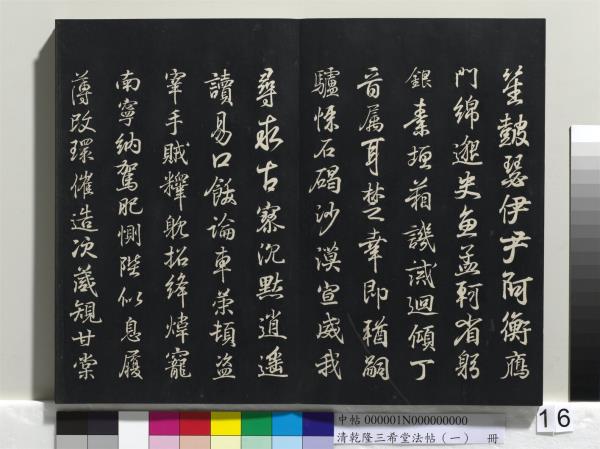 笙鼓瑟伊尹阿衡雁
門綿邈史魚孟軻省躬
銀素垣葙譏誡迴傾丁
音属耳楚幸即猶嗣
驢悚石碣沙漠宣威我
尋求古寮沉默逍遙
讀易口飯論車策頓盗
宰手賊釋耽招絳煒寵
南寧納駕肥惻陛似息履
薄改環催造次蔵規甘棠
中帖 000001N000000000
清乾隆三希堂法帖（一） 冊
16